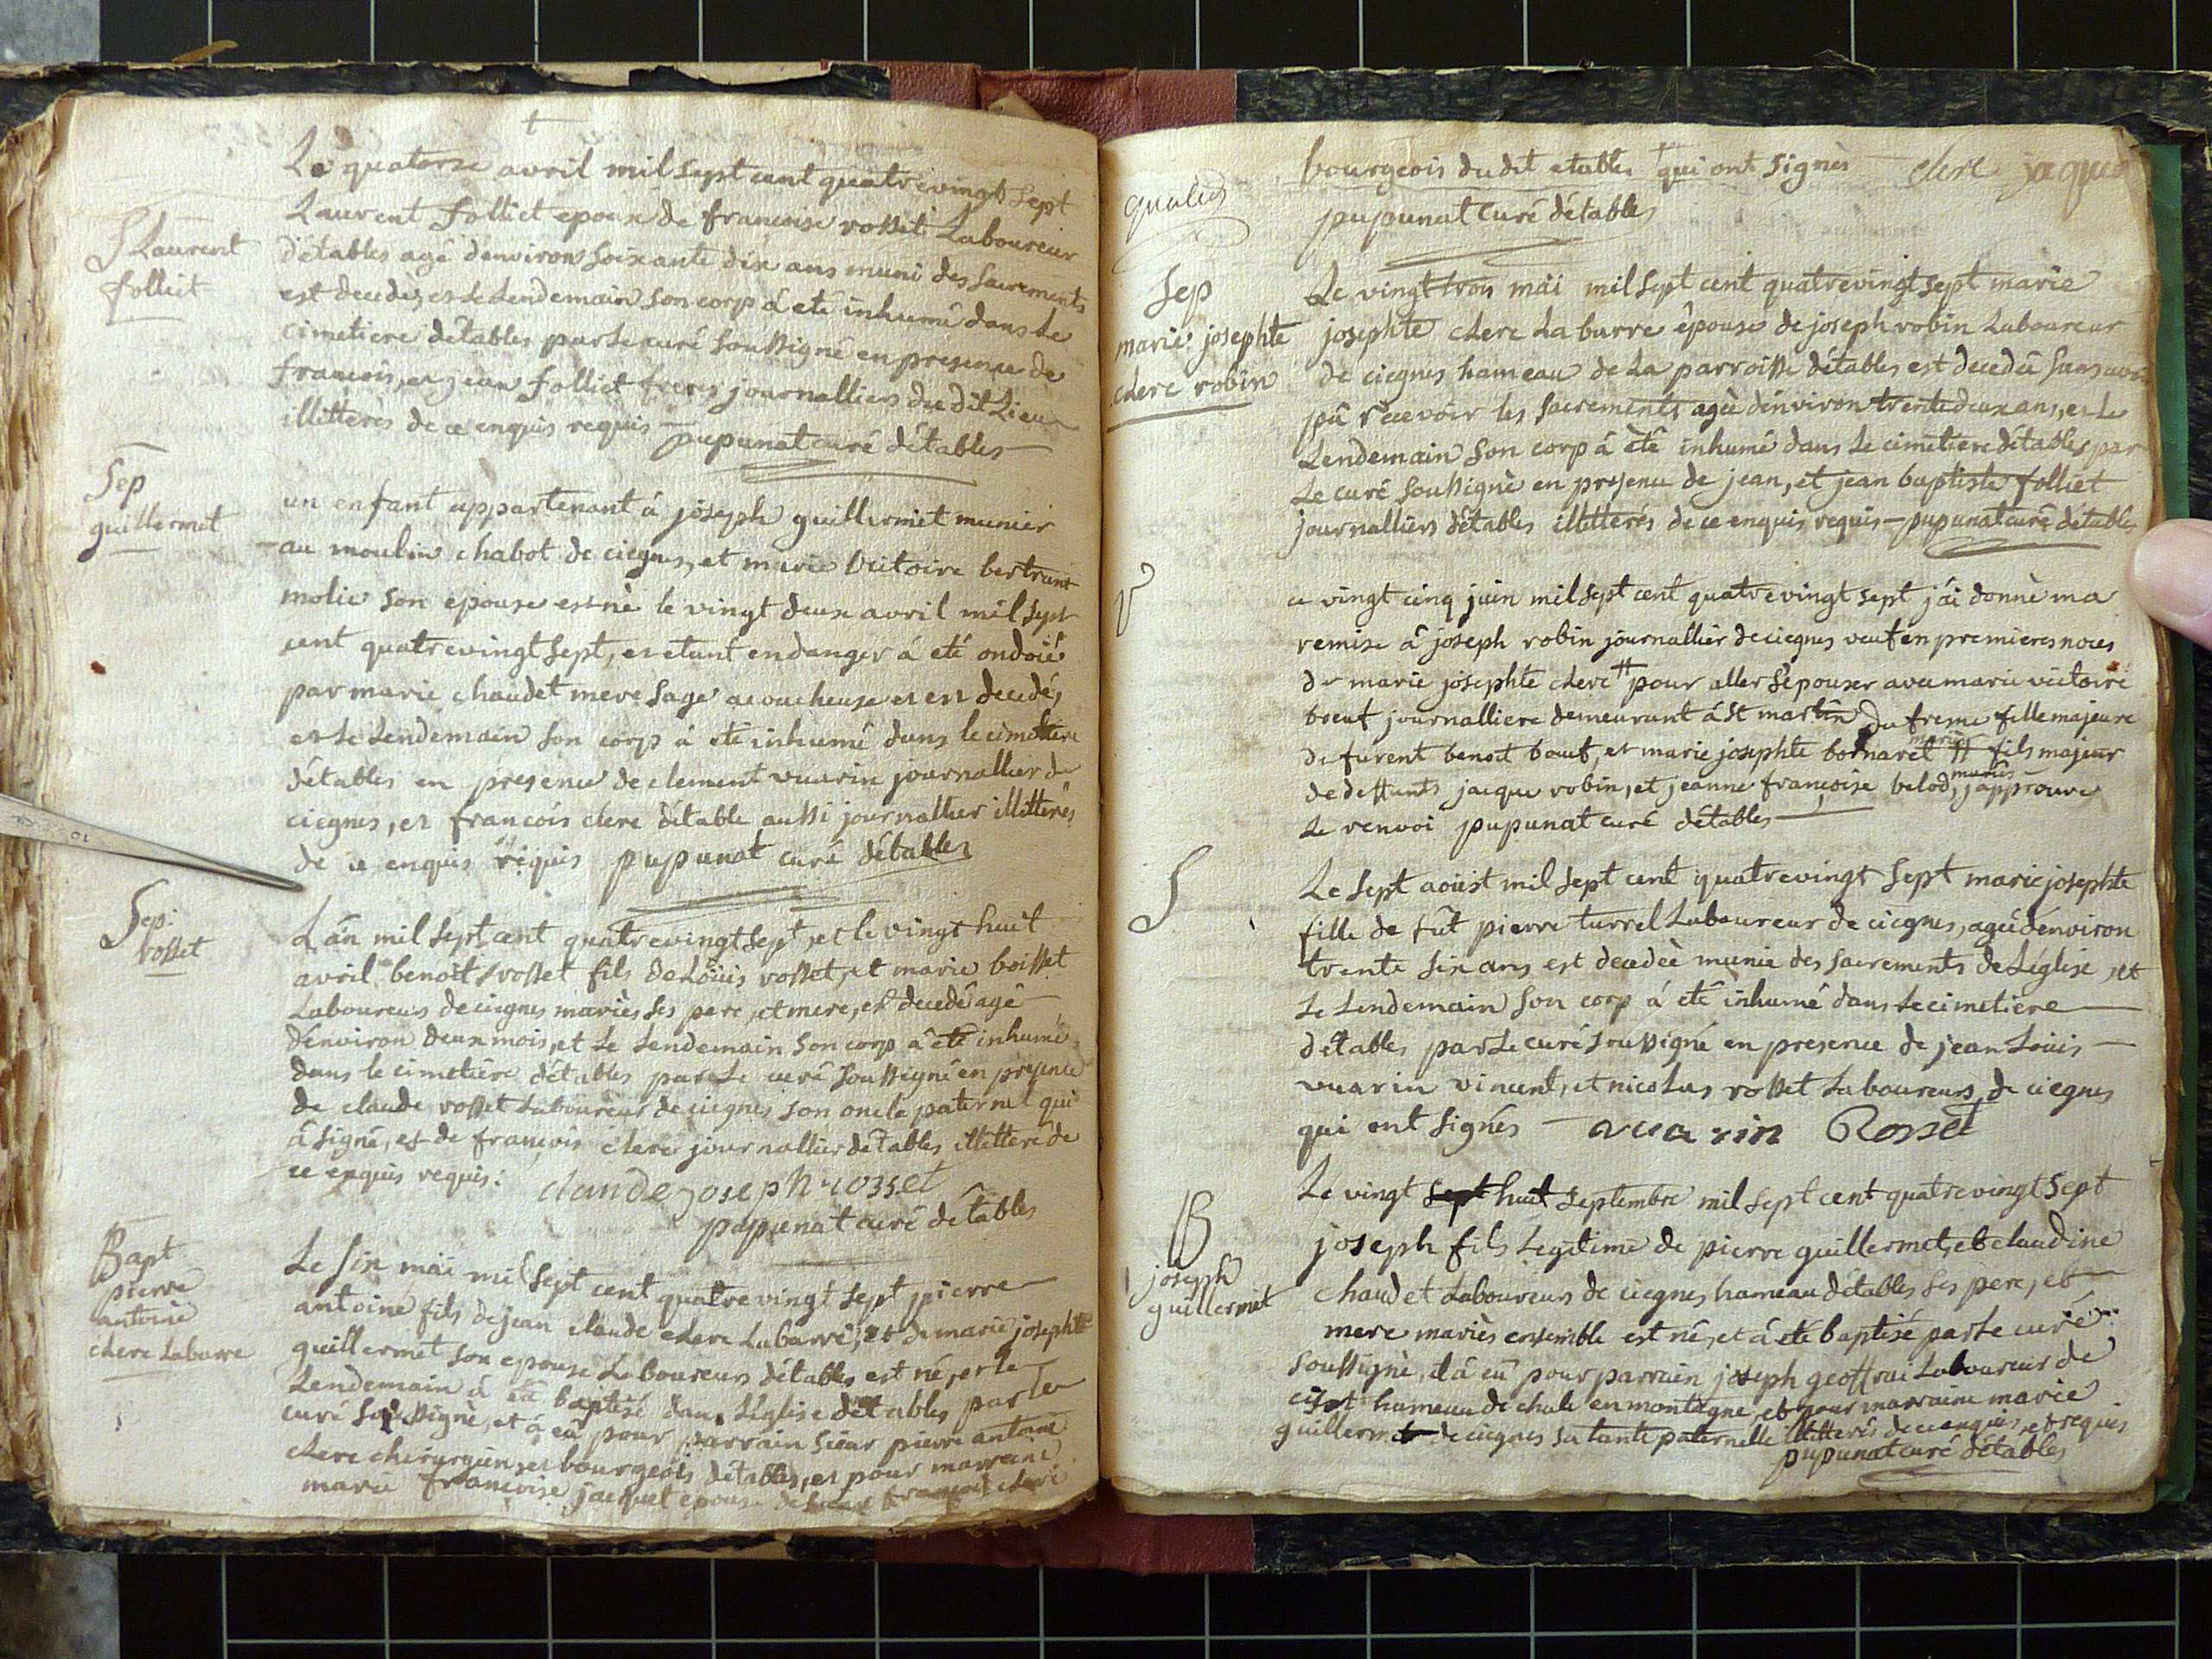 Le quatorze avril mil sept cent quatrevingt sept
S Laurent
folliet
Laurent folliet epoux de francoise rosset Laboureur
d'étables agé d'environ soixante dix ans muni des sacrements
est decedé, et le Lendemain son corp á eté inhumé dans le
cimetiere détables par le curé soussigné en presence de
francois, et jean folliet freres journalliers du dit Lieu
illitterés de ce enquis requis pupunat curé détables
Sep
guillermet
un enfant appartenant á joseph guillermet munier
au moulin chabot de ciegnes, et marie victoire bertrant
molie son epouse est né le vingt deux avril mil sept
cent quatrevingt sept, et etant en danger á eté ondoié
par marie chaudet mere sage acoucheuse et est decedé,
et le Lendemain son corp á eté inhumé dans le cimetiere
détables en presence de clement vuarin journallier de
ciegnes, et francois clerc détable aussi journallier illitterés
de ce enquis requis pupunat curé détables
Sep:
rosset
L'an mil sept cent quatrevingt sept, et le vingt huit
avril benoit rosset fils de Loüis rosset, et marie boisset
Laboureurs de ciegnes mariés ses pere, et mere, est decedé agé
d'environ deux mois, et le Lendemain son corp á eté inhumé
dans le cimetiere détables par le curé soussigné en presence
de claude rosset Laboureur de ciegnes son oncle paternel qui
á signé, et de francois clerc journallier détables illitteré de
ce enquis requis: claude joseph rosset
pupunat curé détables
Bapt
pierre
antoine
clerc Labarre
Le six mai mil sept cent quatrevingt sept pierre
antoine fils de jean claude clerc Labarre, et de marie josephte
guillermet son epouse Laboureurs détables est né, et le
Lendemain á eté baptisé dans L'église détables par le
curé soussigné, et á eû pour parrain sieur pierre antoine
clerc chirurgien, et bourgeois détables, et pour marraine
marie francoise jacquet epouse de francois clerc
bourgeois du dit etables qui ont signés clerc jaquet
pupunat curé détables
Sep
marie josephte
clerc robin
Le vingt trois mai mil sept cent quatrevingt sept marie
josephte clerc La barre épouse de joseph robin Laboureur
de ciegnes hameau de La parroisse détables est decedée sans avoir
pû recevoir les sacrements agée d'environ trente deux ans, et le
Lendemain son corp á été inhumé dans le cimetiere détables par
Le curé soussigné en presence de jean, et jean baptiste folliet
journalliers détables illitterés de ce enquis requis - pupunat curé détables
ce vingt cinq juin mil sept cent quatrevingt sept j'ai donné ma
remise á joseph robin journallier de ciegnes veuf en premieres noces
de marie josephte clerc # pour aller s'épouser avec marie victoire
boeuf journalliere demeurant á st martin du fresne fille majeure
de furent benoit boeuf, et marie josephte bornaret mariés # fils majeur
de deffunts jacque robin, et jeanne françoise belod, mariés j'approuve
Le renvoi pupunat curé détables
S
Le sept aoüst mil sept cent quatrevingt sept marie josephte
fille de fût pierre turrel Laboureur de ciegnes, agée d'environ
trente six ans est decedée munie des sacrements de L'église, et
Le Lendemain son corp á eté inhumé dans le cimetiere
détables par le curé soussigné en presence de jean Loüis
vuarin vincent, et nicolas rosset Laboureurs de ciegnes
qui ont signés vuarin Rosset
B
joseph
guillermet
Le vingt sept huit septembre mil sept cent quatrevingt sept
joseph fils Legitime de pierre guillermet, et claudine
chaudet Laboureurs de ciegnes hameau détables ses pere, et
mere mariés ensemble est né, et á eté baptisé par le curé
soussigné, il á eû pour parrain joseph geoffrai Laboureur de
hameau de chale en montagne, et pour marraine marie
guillermet de ciegnes sa tante paternelle illitterés de ce enquis, et requis
pupunat curé détables